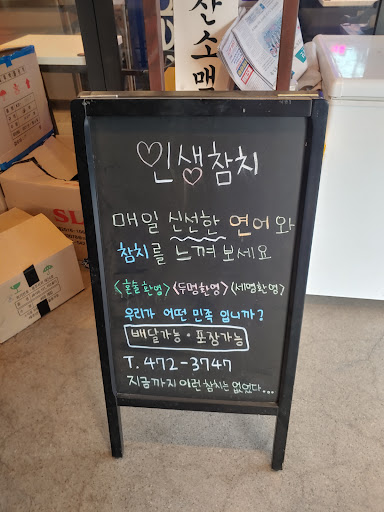 산소매
♡인생참치
매일 신선한 연어와
참치를 느껴보세요
<혼술환영> <두명환영> <세명환영>
우리가 어떤 민족 입니까?
배달가능 · 포장가능
T. 472-3747
지금까지 이런 참치는 없었다...
SL